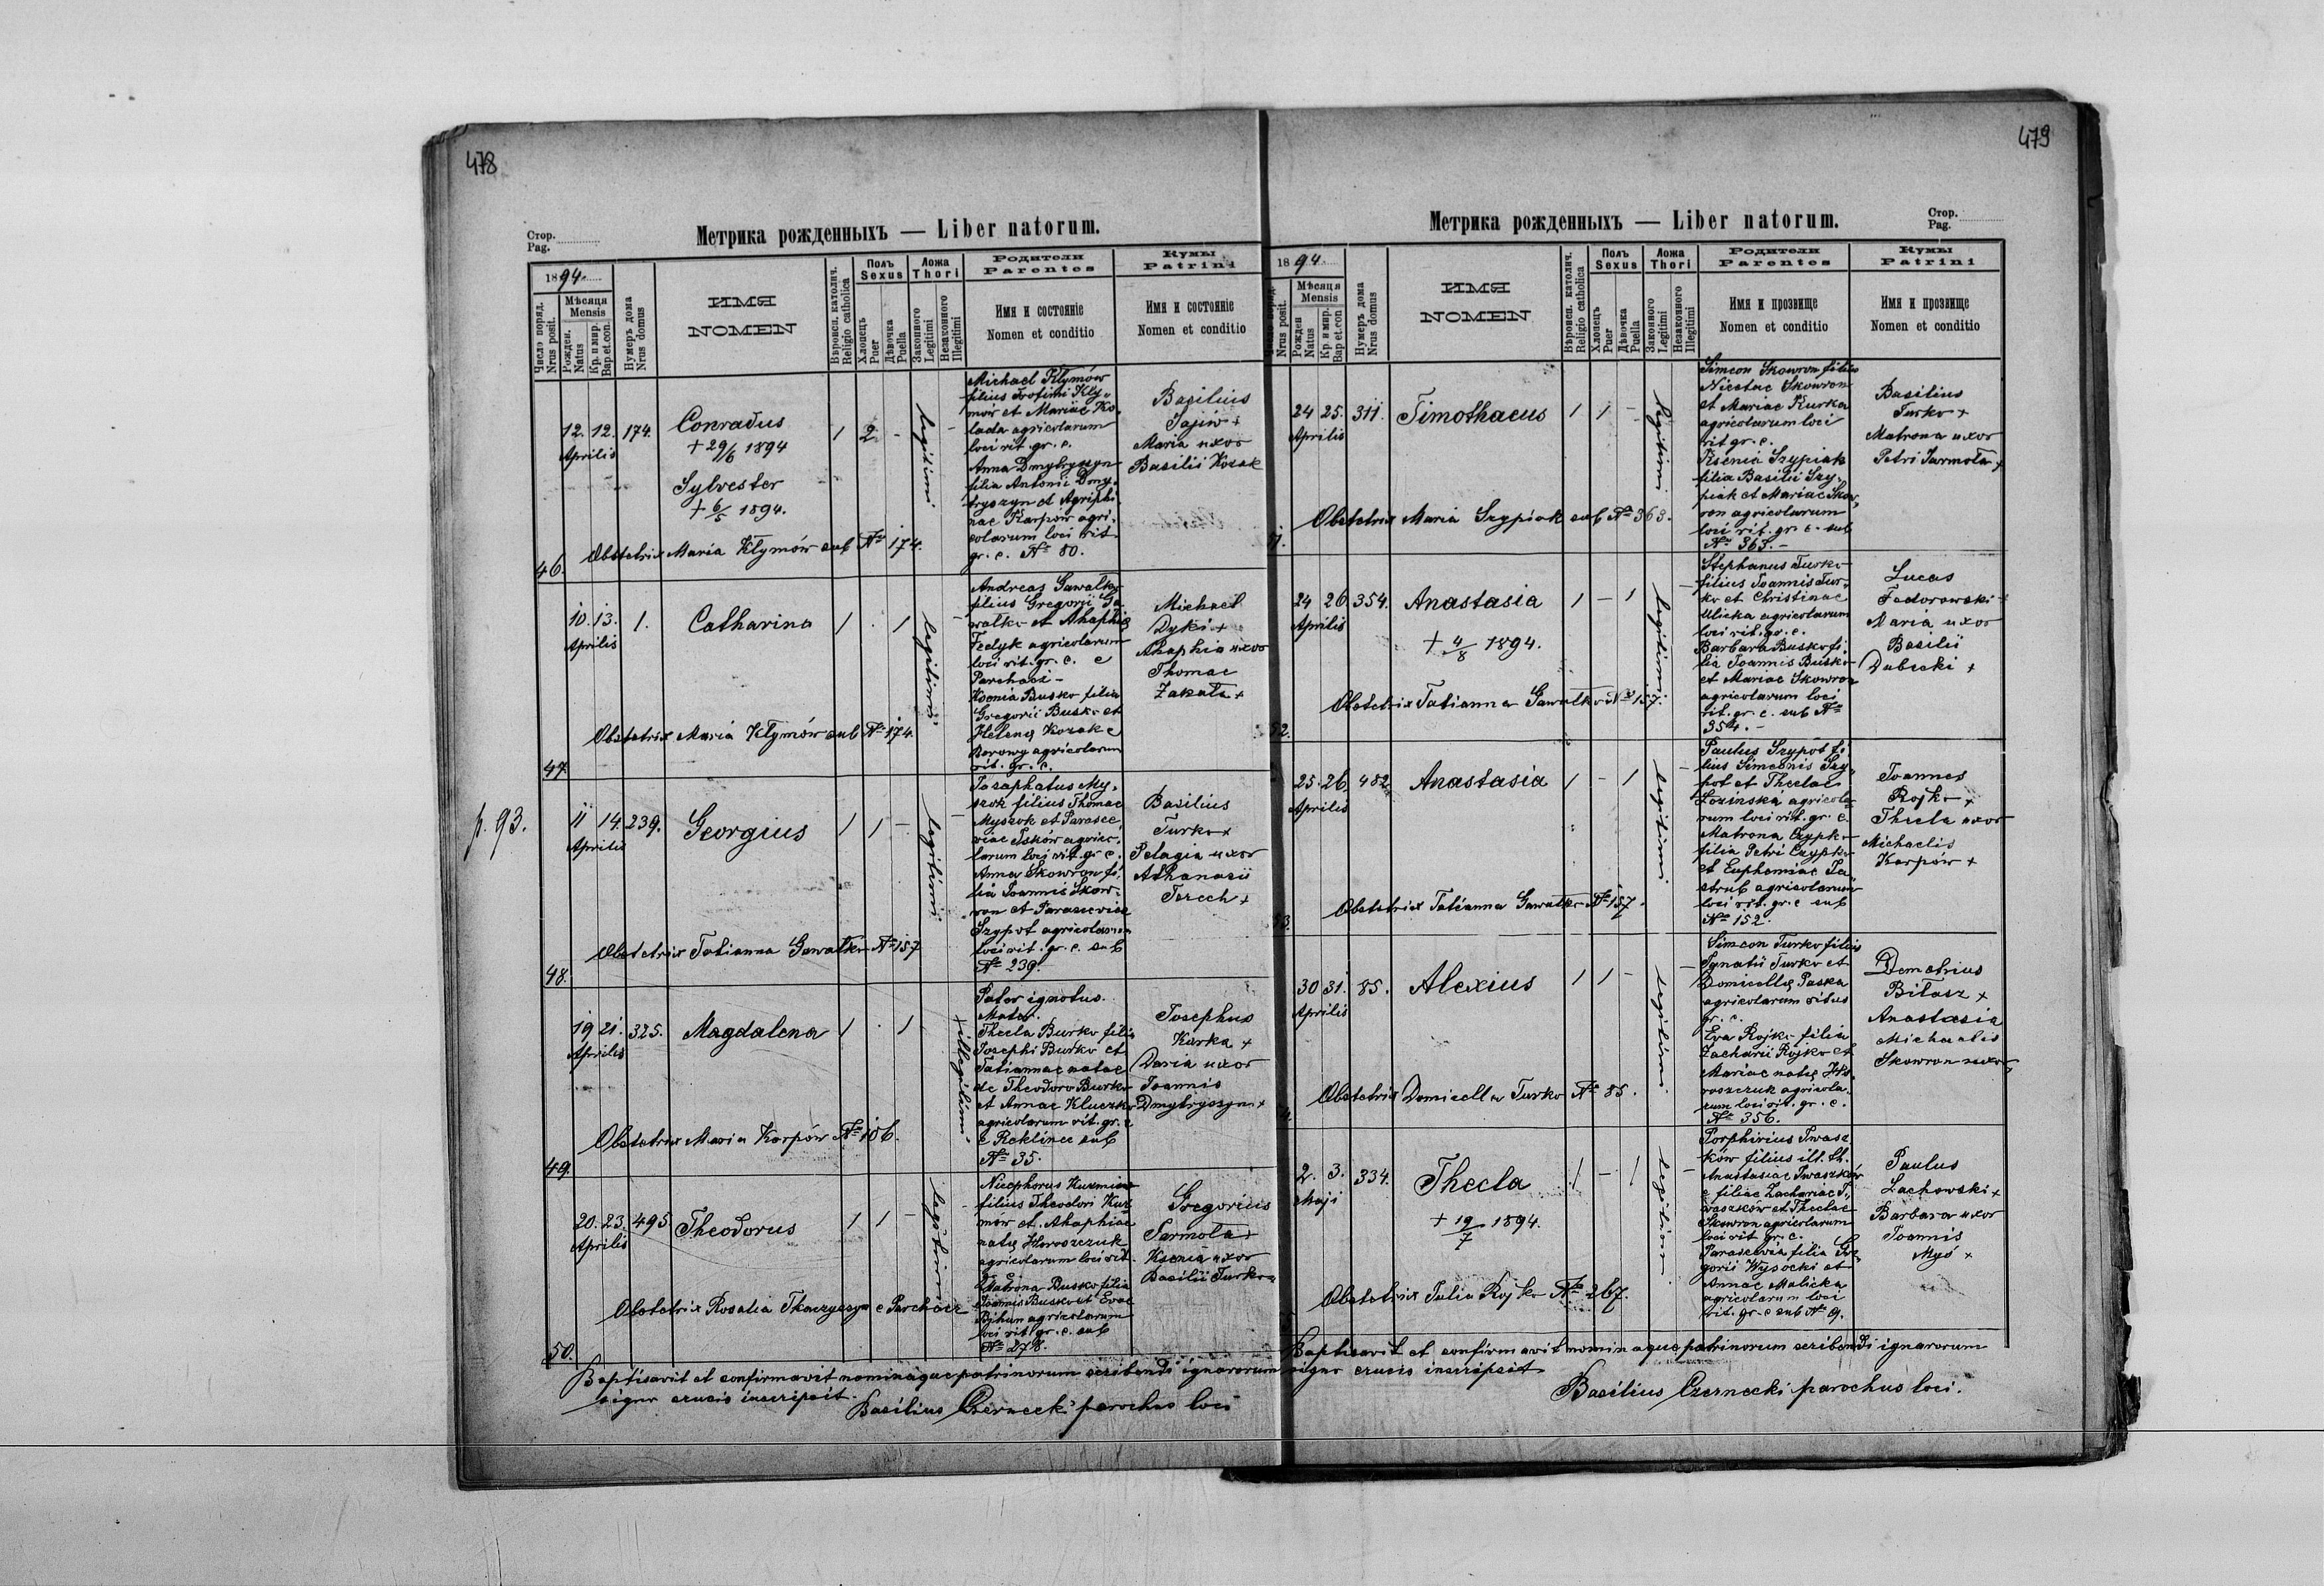 478
Стор.
Pag.
Метрика рожденныхъ — Liber natorum.
1894
Число поряд.
Nrus posit.
Мѣсяца
Mensis
Рожден.
Natus
Кр. и мир.
Bap.et.con.
Нумеръ дома
Nrus domus
ИМЯ
NOMEN
Вѣроисп. католич.
Religio catholica
Полъ
Sexus
Хлопецъ
Puer
Дѣвочка
Puella
Ложа
Thori
Законного
Legitimi
Незаконного
Illegitimi
Родители
Parentes
Имя и состояніе
Nomen et conditio
Кумы
Patrini
Имя и состояніе
Nomen et conditio
46.
12. 12. 174.
Aprilis
Conradus
+ 29/6 1894
Sylvester
+ 6/5 1894.
1 2 -
legitimi
Michael Klymów
filius Trofimi Kly-
mów et Mariae Ko-
lada agricolarum
loci rit. gr. c.
Anna Dmytryszyn
filia Antonii Dmy-
tryszyn et Agriphi-
nae Karpów agri-
colarum loci rit.
gr. c. No 80.
Basilius
Jajiw +
Maria uxor
Basilii Kozak
Obstetrix Maria Klymów sub No 174.
47.
10. 13. 1.
Aprilis
Catharina
1 . 1
legitimi
Andreas Gawalko
filius Gregorii Ga-
walko et Ahaphię
Fedyk agricolarum
loci rit. gr. c. e
Parchacz -
Ksenia Busko filia
Gregorii Busko et
Helenę Kozak e
Borowy agricolarum
rit. gr. c.
Michael
Dyki +
Ahaphia uxor
Thomae
Zakala +
Obstetrix Maria Klymów sub No 174.
p. 93.
48.
11 14. 239.
Aprilis
Georgius
1 1 -
legitimi
Josaphatus My-
szok filius Thomae
Myszok et Parasce-
viae Iskow agrico-
larum loci rit. gr. c.
Anna Skowron fi-
lia Joannis Skow-
ron et Parasceviae
Szypot agricolarum
loci rit. gr. c. sub
No 239.
Basilius
Turko +
Pelagia uxor
Athanasii
Terech +
Obstetrix Tatianna Gawalko No 157
49.
19 21. 325.
Aprilis
Magdalena
1 . 1
+ illegitimi
Pater ignotus.
Mater
Thecla Burko filia
Josephi Burko et
Tatiannae natae
de Theodoro Burko
et Annae Kluczko
agricolarum rit. gr. c
e Reklinec sub
No 35.
Josephus
Kurka +
Daria uxor
Joannis
Dmytryszyn +
Obstetrix Maria Karpów No 106.
50.
20. 23. 495
Aprilis
Theodorus
1 1 -
legitimi
Nicephorus Kuzmiów
filius Theodori Kuz-
mów et Ahaphiae
natę Horoszczuk
agricolarum loci rit.
gr. c.
Matrona Busko filia
Joannis Busko et Evae
Bihun agricolarum
loci rit. gr. c. sub
No 278.
Gregorius
Jarmola +
Ksenia uxor
Basilii Turko +
Obstetrix Rosalia Tkaczyszyn e Parchacz
Baptisavit et confirmavit nominaque patrinorum scribendi ignarorum
signo crucis inscripsit. Basilius Czernecki parochus loci
479
Стор.
Pag.
Метрика рожденныхъ — Liber natorum.
1894
Nrus posit.
Мѣсяца
Mensis
Рожден
Natus
Кр. и мир.
Bap et.con
Нумеръ дома
Nrus domus
ИМЯ
NOMEN
Вѣроисп. католич.
Religio catholica
Полъ
Sexus
Хлопецъ
Puer
Дѣвочка
Puella
Ложа
Thori
Законного
Legitimi
Незаконного
Illegitimi
Родители
Parentes
Имя и прозвище
Nomen et conditio
Кумы
Patrini
Имя и прозвище
Nomen et conditio
51.
24 25. 311.
Aprilis
Timothaeus
1 1 -
legitimi
Simeon Skowron filius
Nicetae Skowron
et Mariae Kurka
agricolarum loci
rit gr. c.
Ksenia Szypiak
filia Basilii Szy-
piak et Mariae Skow-
ron agricolarum
loci rit. gr. c. sub
No 363. -
Basilius
Turko +
Matrona uxor
Petri Jarmola +
Obstetrix Maria Szypiak sub No 363.
52.
24 26. 354.
Aprilis
Anastasia
+ 4/8 1894.
1 - 1
legitimi
Stephanus Turko
filius Joannis Tur-
ko et Christinae
Ulicka agricolarum
loci rit. gr. c.
Barbara Busko fi-
lia Joannis Busko
et Mariae Skowron
agricolarum loci
rit. gr. c. sub No
354. -
Lucas
Fedorowski +
Maria uxor
Basilii
Dubecki +
Obstetrix Tatianna Gawalko No 157.
53.
25. 26. 482
Aprilis
Anastasia
1 - 1
legitimi
Paulus Szypot fi-
lius Simeonis Szy-
pot et Theclae
Lozinska agricola-
rum loci rit. gr. c.
Matrona Czypko
filia Petri Czypko
et Euphemiae Ja-
strub agricolarum
loci rit. gr. c sub
No 152.
Joannes
Rojko +
Thecla uxor
Michaelis
Karpów +
Obstetrix Tatianna Gawalko No 157.
30 31. 85.
Aprilis
Alexius
1 1 -
legitimi
Simeon Turko filius
Ignatii Turko et
Domicellę Paska
agricolarum ritus
gr. c.
Eva Rojko filia
Zacharii Rojko et
Mariae natę Ho-
roszczuk agricola-
rum loci rit. gr. c.
No 356.
Demetrius
Bilasz +
Anastasia
Michaelis
Skowron uxor +
Obstetrix Domicella Turko No 85.
2. 3. 334.
Maji
Thecla
+ 19/7 1894.
1 - 1
legitimi
Porphirius Iwasz-
ków filius ill. th.
Anastasiae Iwaszków
e filiae Zachariae I-
waszków et Theclae
Skowron agricolarum
loci rit gr. c.
Parascevia filia Gre-
gorii Wysocki et
Annae Malicka
agricolarum loci
rit. gr. c sub No 9.
Paulus
Lachowski +
Barbara uxor
Joannis
Myś +
Obstetrix Julia Rojko No 267.
Baptisavit et confirmavit nominaque patrinorum scribendi ignarorum
signo crucis inscripsit
Basilius Czernecki parochus loci.